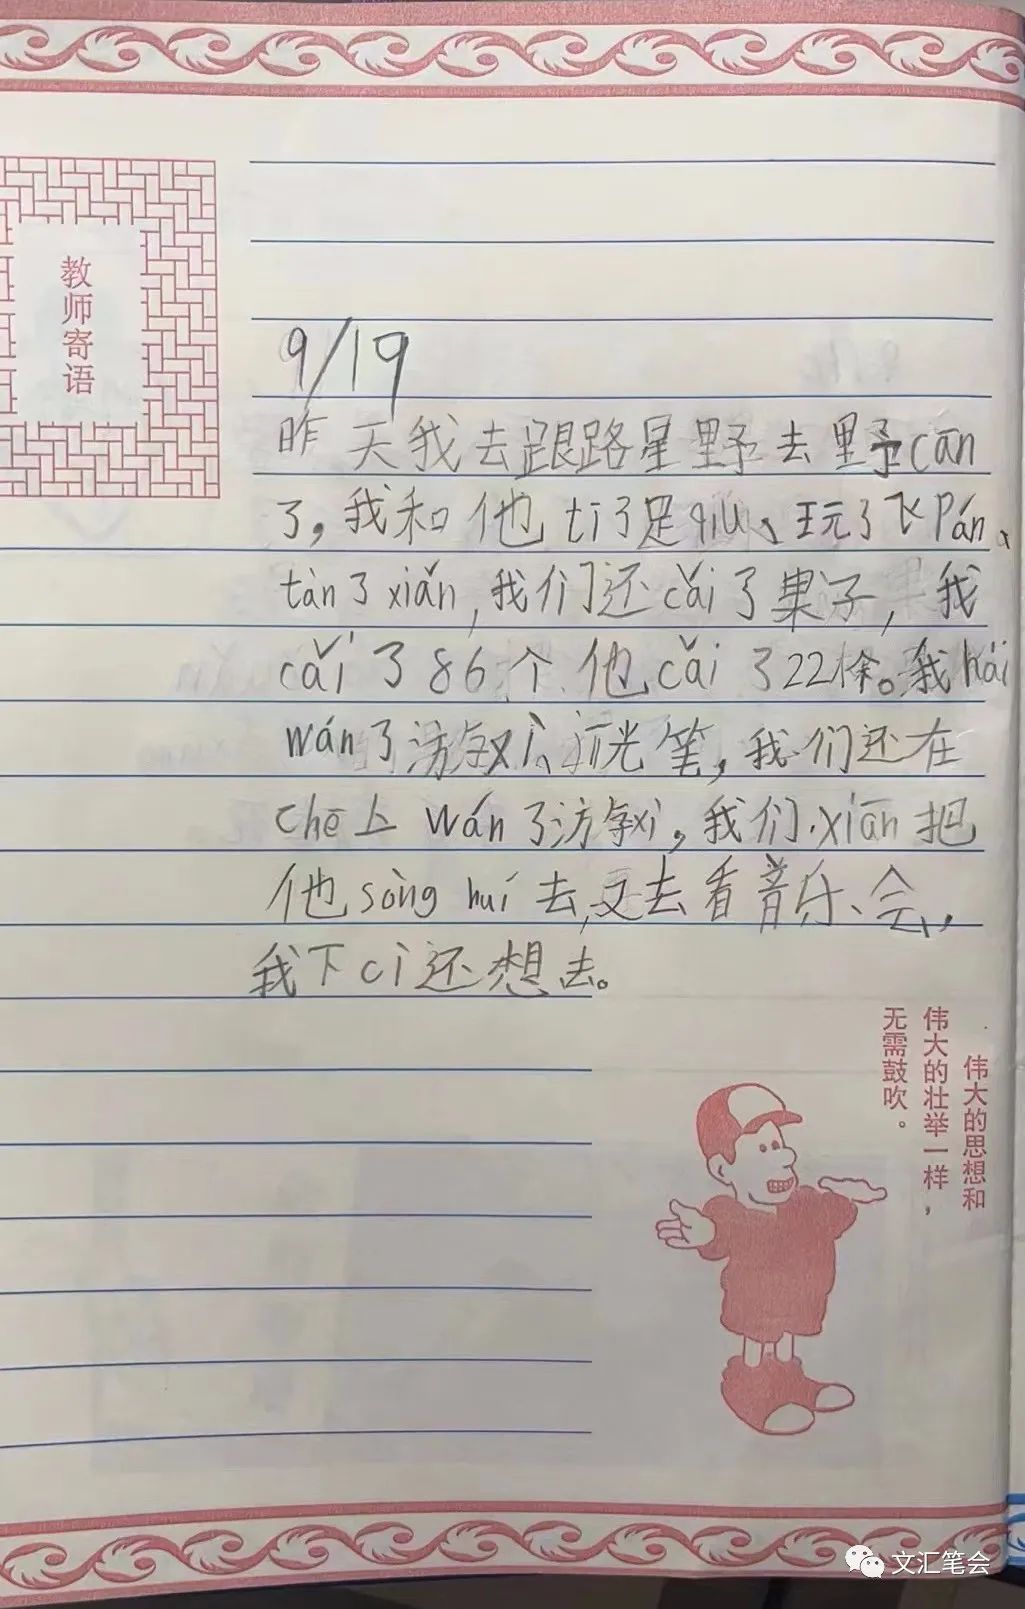 教师寄语
9/19
昨天我去跟路星野去野cān
了,我和他tī了足qiú、玩了飞Pán、
tàn了xiǎn,我们还cǎi了果子,我
cǎi了86个他cǎi了22棵。我hái
wán了游戏、光笔,我们还在
chē上wán了游戏,我们xiān把
他sòng huí去,又去看音乐会,
我下cì还想去。
伟大的思想和
伟大的壮举一样,
无需鼓吹。
文汇笔会